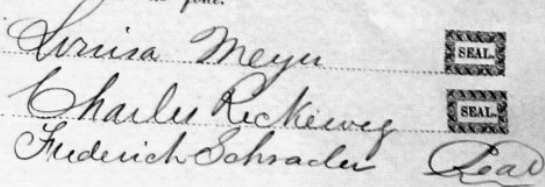 Louisa Meyer SEAL.
Charles Reckeweg SEAL.
Frederich Schrader Seal